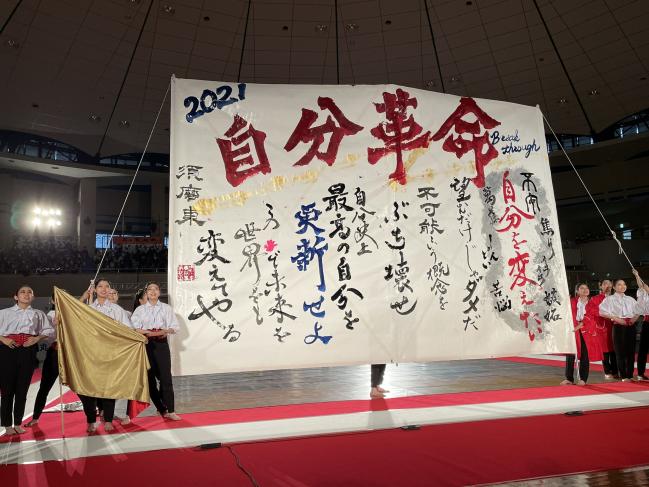 2021
自分革命
Break
through
不安 焦り 比較 嫉妬
自分を変えたい
望むだけじゃダメだ
不可能という概念を
ぶち壊せ
自分史上
最高の自分を
更新せよ
未来を
世界をも
変えてやる
須磨東